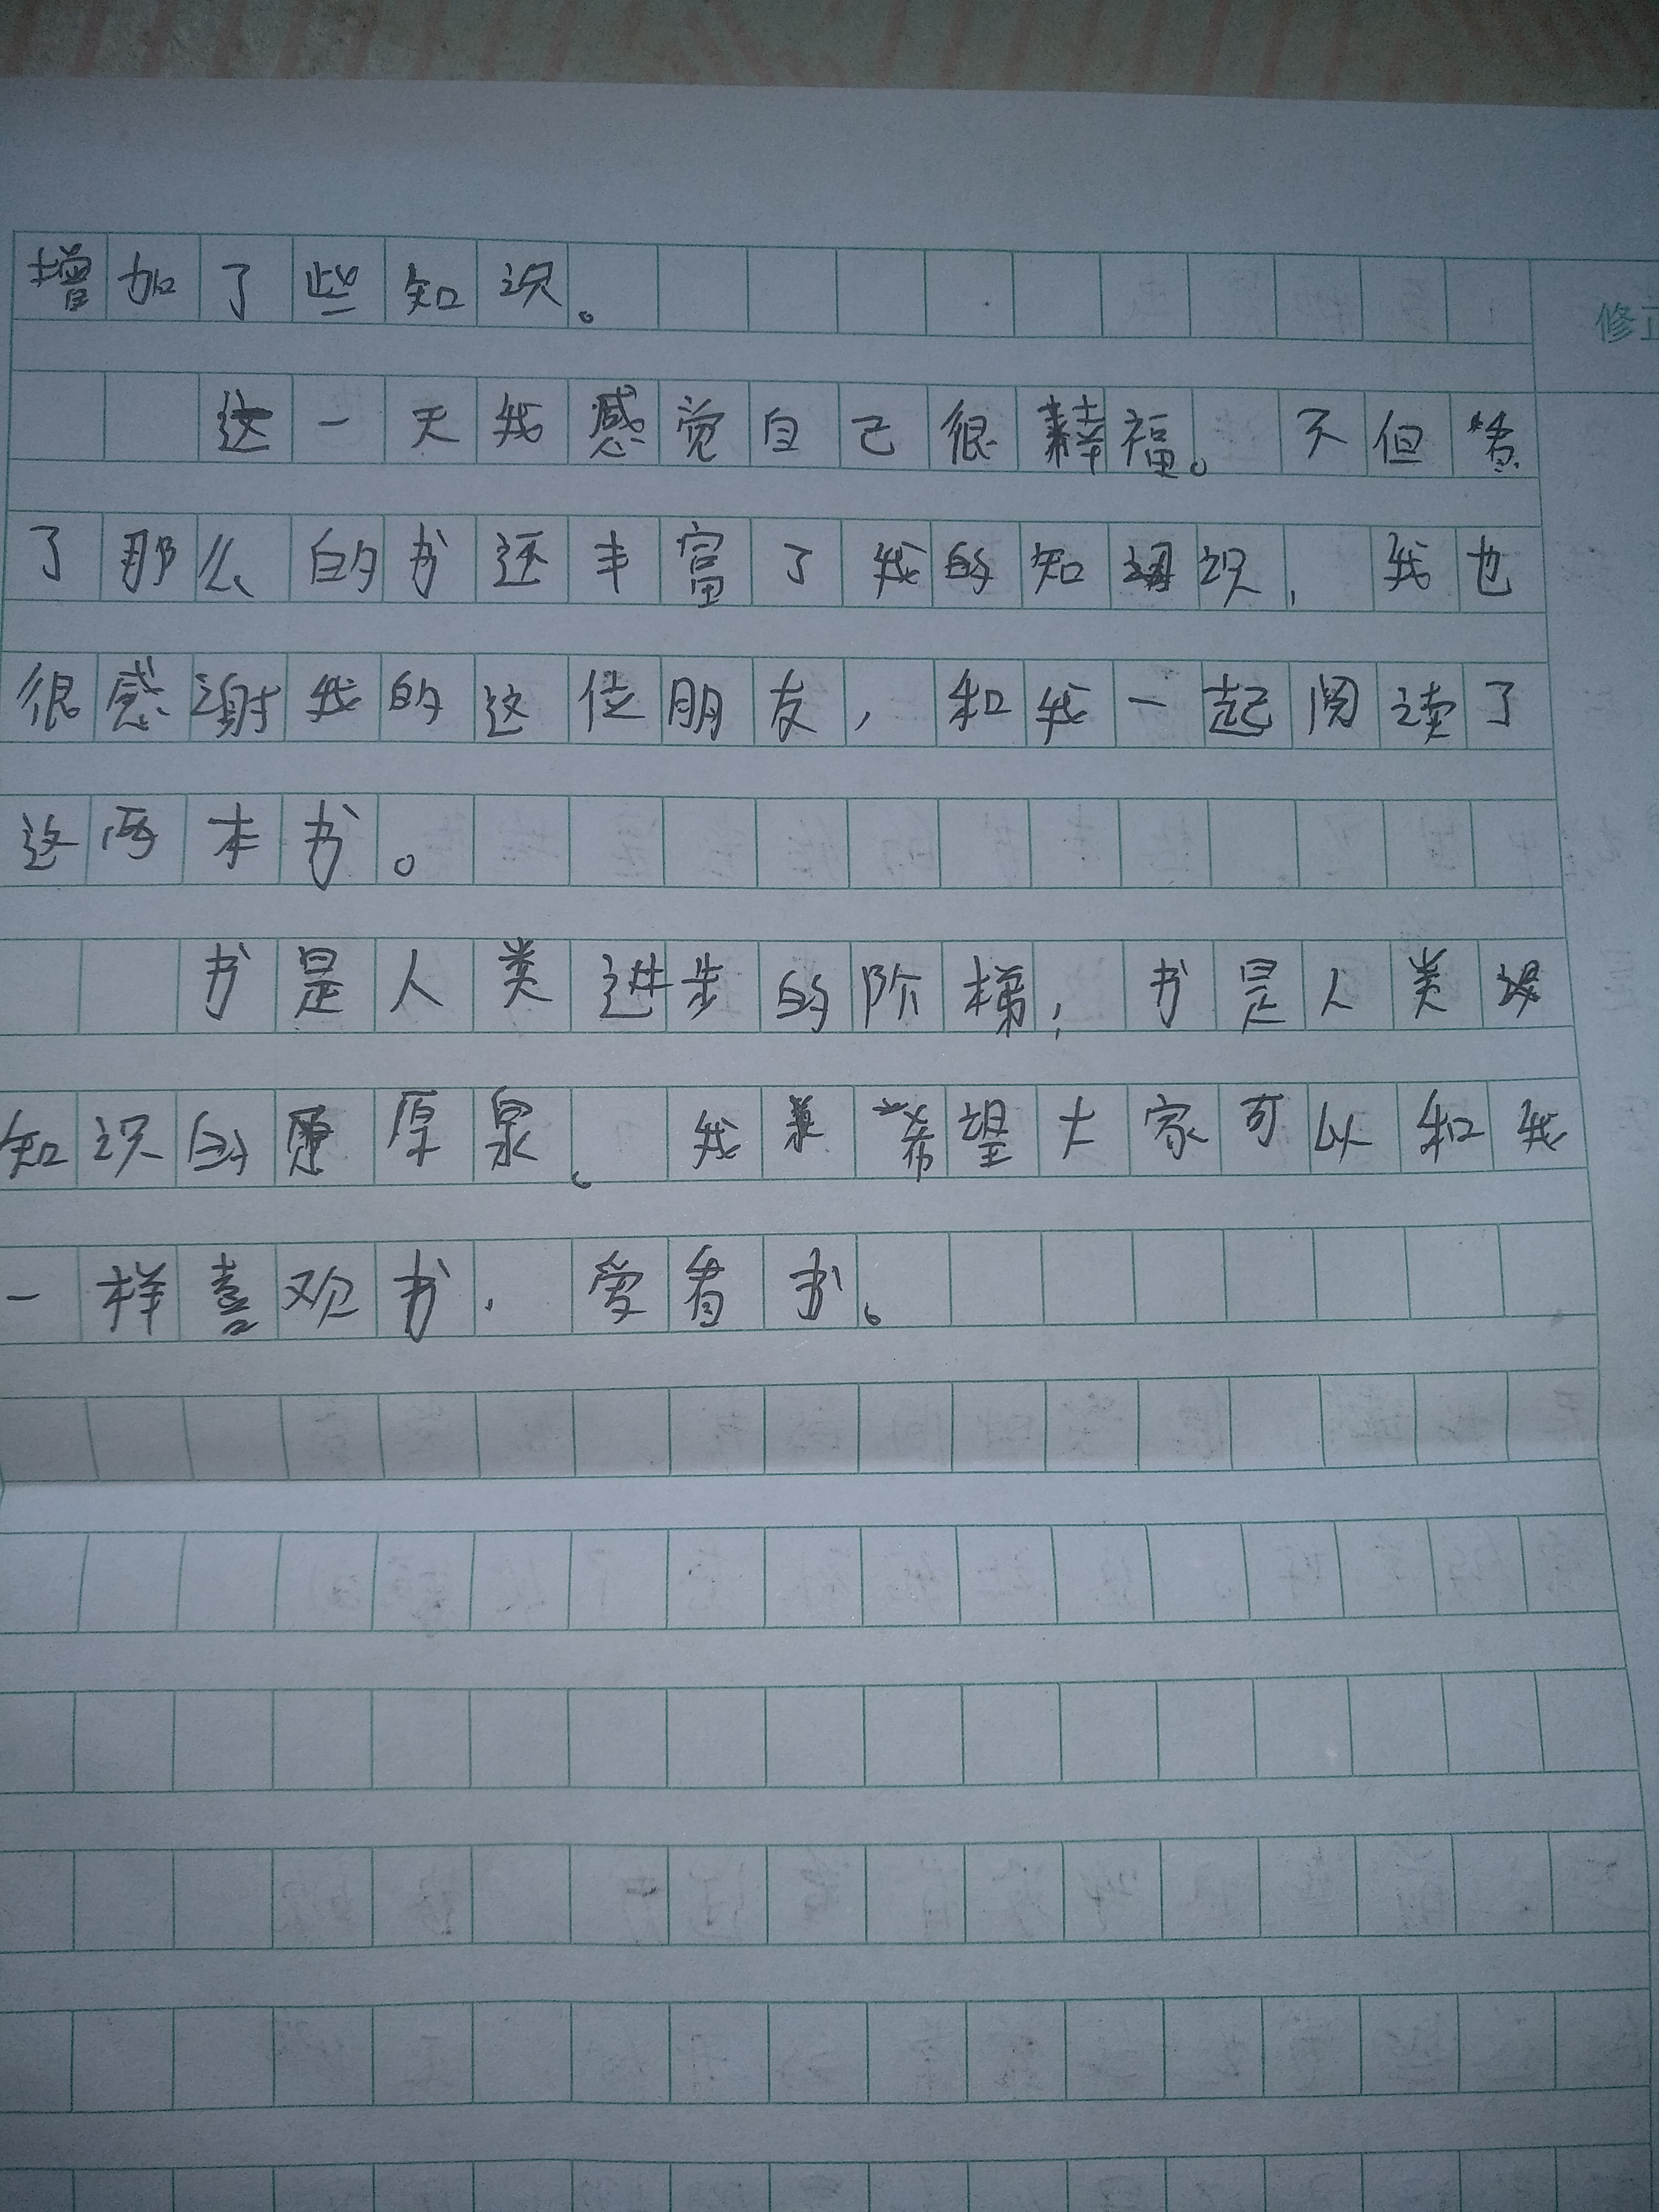 增加了些知识。
修正
这一天我感觉自己很幸福。不但看
了那么的书还丰富了我的知识，我也
很感谢我的这位朋友，和我一起阅读了
这两本书。
书是人类进步的阶梯，书是人类
知识的原泉。我希望大家可以和我
一样喜欢书，爱看书。